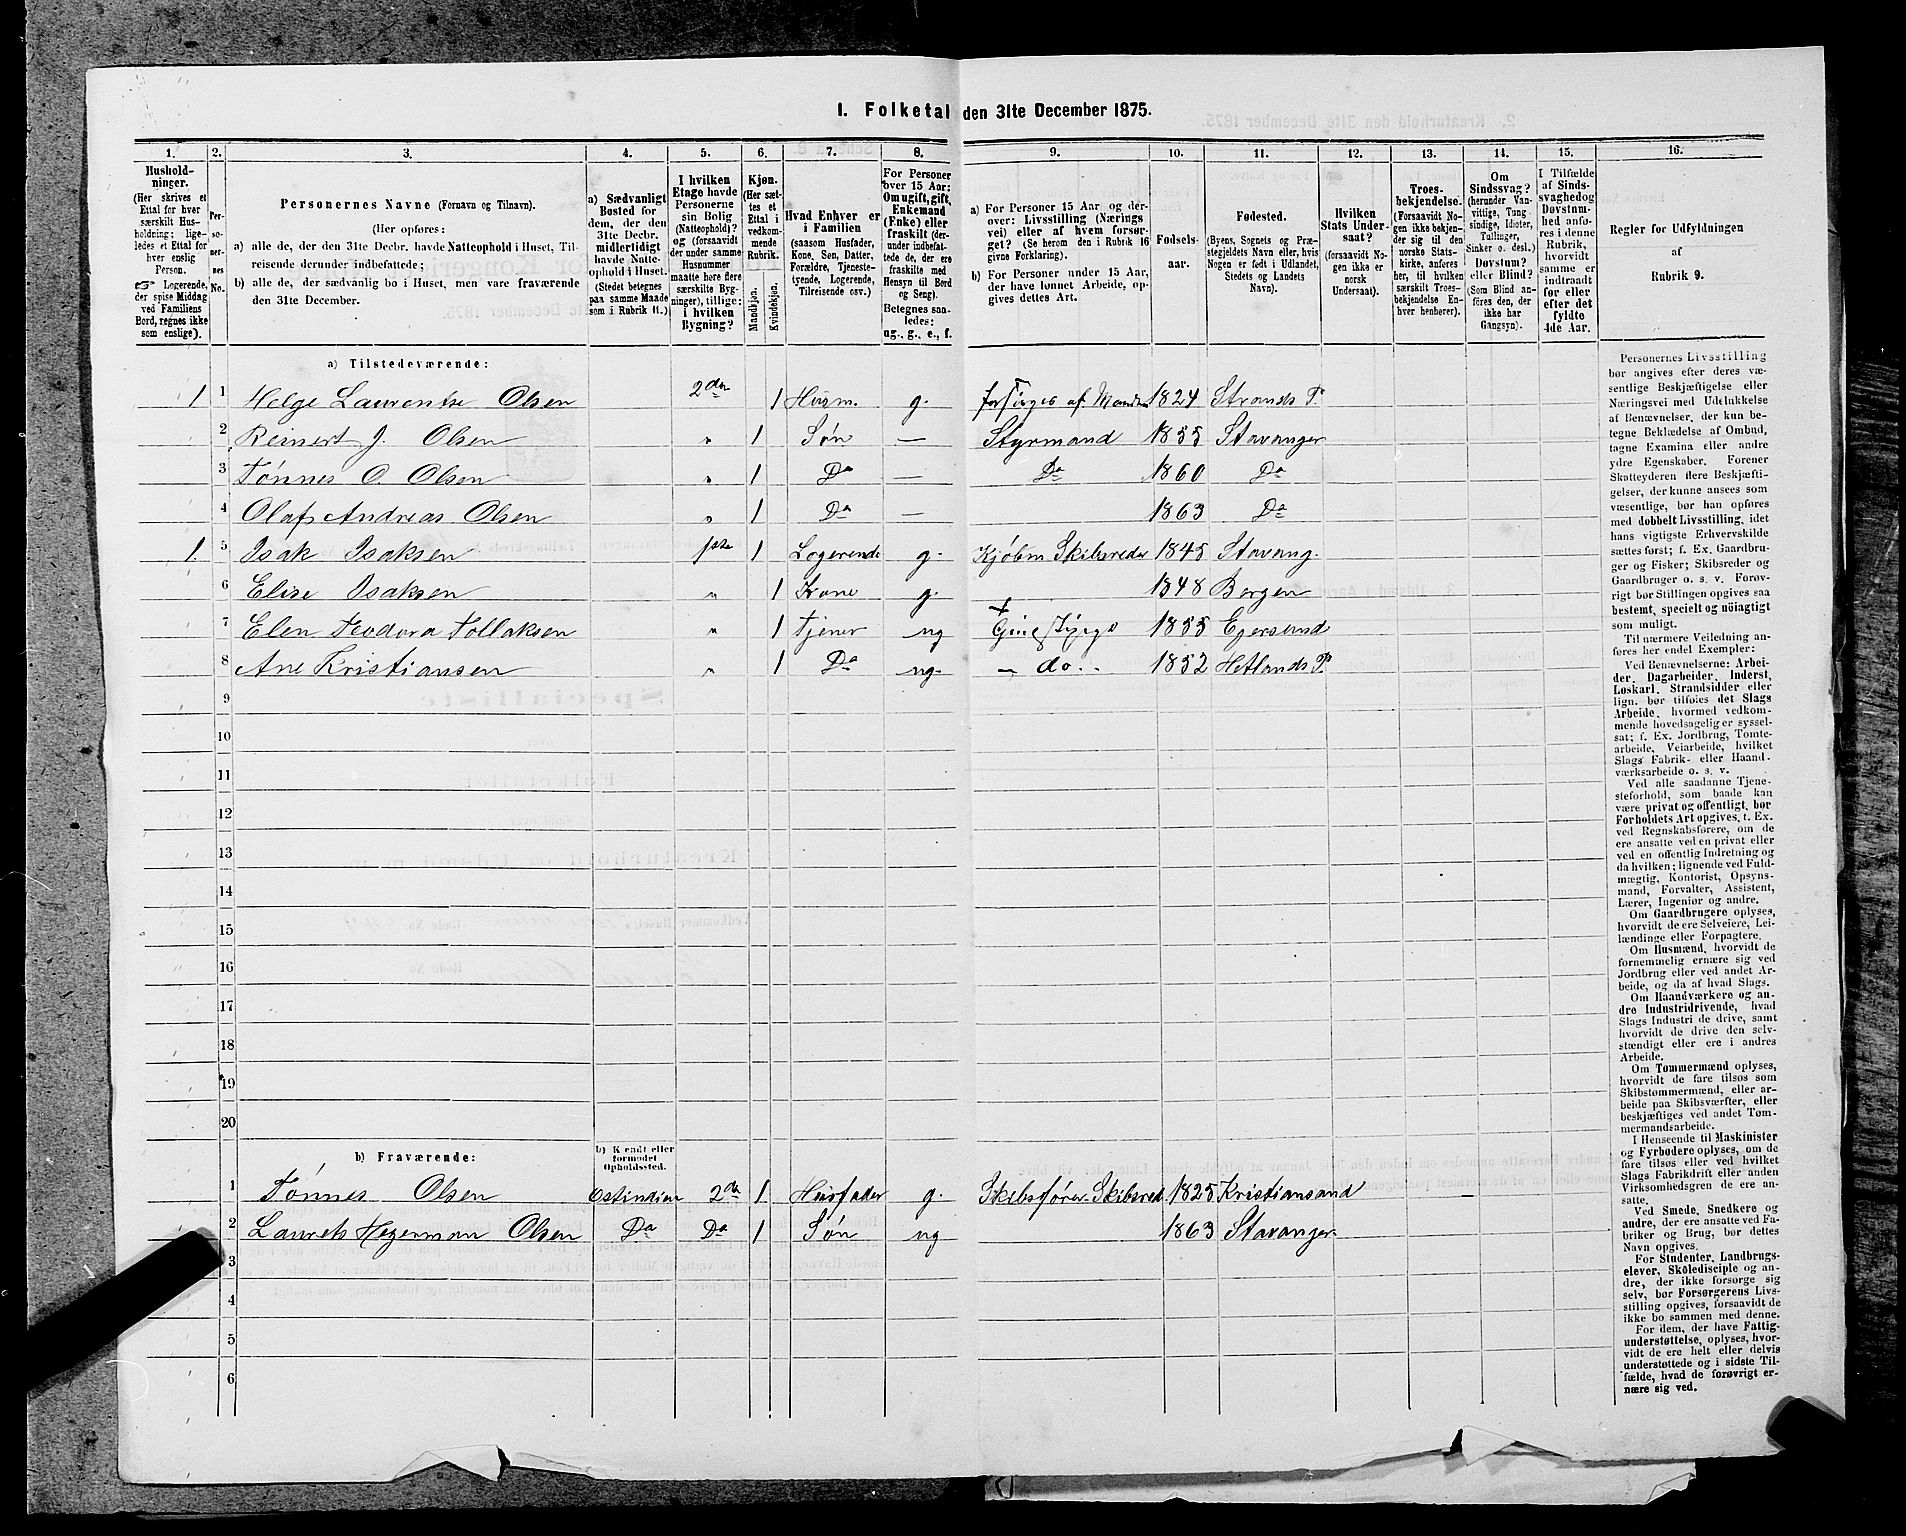 1. Folketal den 31te December 1875.
1. 2. 3. 4. 5. 6. 7. 8. 9. 10. 11. 12. 13. 14. 15. 16.
Hushold-
ninger.
(Her skrives et
Ettal for hver
særskilt Hus-
holdning; lige-
ledes et Ettal for
hver enslig
Person.
Logerende,
der spise Middag
ved Familiens
Bord, regnes ikke
som enslige).
Per-
so-
ner-
nes
No.
Personernes Navne (Fornavn og Tilnavn).
(Her opføres:
a) alle de, der den 31te Decbr. havde Natteophold i Huset, Til-
reisende derunder indbefattede;
b) alle de, der sædvanlig bo i Huset, men vare fraværende
den 31te December.
a) Sædvanligt
Bosted for
dem, der den
31te Decbr.
midlertidigt
havde Natte-
ophold i Huset.
(Stedet betegnes
paa samme Maade
som i Rubrik 11.)
I hvilken
Etage havde
Personerne
sin Bolig
(Natteophold)?
og (forsaavidt
der under samme
Husnummer
maatte høre flere
særskilte Byg-
ninger), tillige:
i hvilken
Bygning?
Kjøn.
(Her sæt-
tes et
Ettal i
vedkom-
mende
Rubrik.
Mandkjøn.
Kvindekjøn.
Hvad Enhver er
i Familien
(saasom Husfader,
Kone, Søn, Datter,
Forældre, Tjeneste-
tyende, Logerende,
Tilreisende osv.)
For Personer
over 15 Aar:
Om ugift, gift,
Enkemand
(Enke) eller
fraskilt (der-
under indbefat-
tede de, der ere
fraskilte med
Hensyn til Bord
og Seng).
Betegnes saa-
ledes:
ug., g., e., f.
a) For Personer 15 Aar og der-
over: Livsstilling (Nærings
vei) eller af hvem forsør-
get? (Se herom den i Rubrik 16
givne Forklaring).
b) For Personer under 15 Aar,
der have lønnet Arbeide, op-
gives dettes Art.
Fødsels-
aar.
Fødested.
(Byens, Sognets og Præ-
stegjeldets Navn eller, hvis
Nogen er født i Udlandet,
Stedets og Landets
Navn).
Hvilken
Stats Under-
saat?
(forsaavidt No-
gen ikke er
norsk
Undersaat).
Troes-
bekjendelse.
(Forsaavidt No-
gen ikke bekjen-
der sig til den
norske Stats-
kirke, anføres
her, til hvilken
særskilt Troes-
bekjendelse En-
hver henhører).
Om
Sindssvag?
(herunder Van-
vittige, Tung
sindige, Idioter,
Tullinger,
Sinker o. desl.)
Døvstum?
eller Blind?
(Som Blind an-
føres den, der
ikke har
Gangsyn).
I Tilfælde
af Sinds-
svaghed og
Døvstum-
hed anfø-
res i denne
Rubrik,
hvorvidt
samme er
indtraadt
før eller
efter det
fyldte
4de Aar.
Regler for Udfyldningen
af
Rubrik 9.
a) Tilstedeværende:
1 1 Helge Laurentse Olsen 2den 1 Husm. g. forsørges af Manden 1824 Strands P.
2 Reinert J. Olsen " 1 Søn — Styrmand 1855 Stavanger
3 Tønnes O. Olsen " 1 Do — Do 1860 Do
4 Olaf Andreas Olsen " 1 Do — 1863 Do
1 5 Isak Isaksen 1ste 1 Logerende g. Kjøbm Skibsreder 1845 Stavang.
6 Elise Isaksen " 1 Kone g. 1848 Bergen
7 Elen Teodora Tollaksen " 1 Tjener ug 1855 Egersund
8 Ane Kristiansen " 1 Do ug. — do.. 1852 Hetlands P.
9
10
11
12
13
14
15
16
17
18
19
20
b) Fraværende:
b) Kjendt eller
formodet
Opholdssted.
1 Tønnes Olsen Ostindien 2den 1 Husfader g. Skibsfører. Skibsred. 1825 Kristiansand
2 Laurits Hegerman Olsen Do Do 1 Søn ug 1863 Stavanger.
3
4
5
6
Personernes Livsstilling
bør angives efter deres væ-
sentlige Beskjæftigelse eller
Næringsvei med Udelukkelse
af Benævnelser, der kun be-
tegne Beklædelse af Ombud,
tagne Examina eller andre
ydre Egenskaber. Forener
Skatteyderen flere Beskjæfti-
gelser, der kunne ansees som
væsentlige, bør han opføres
med dobbelt Livsstilling, idet
hans vigtigste Erhvervskilde
sættes først; f. Ex. Gaardbru-
ger og Fisker; Skibsreder og
Gaardbruger o. s. v. Forøv-
rigt bør Stillingen opgives saa
bestemt, specielt og nöiagtigt
som muligt.
Til nærmere Veiledning an-
føres her endel Exempler:
Ved Benævnelserne: Arbei-
der, Dagarbeider, Inderst,
Løskarl, Strandsidder eller
lign. bør tilføies det Slags
Arbeide, hvormed vedkom-
mende hovedsagelig er syssel-
sat; f. Ex. Jordbrug, Tomte-
arbeide, Veiarbeide, hvilket
Slags Fabrik- eller Haand-
værksarbeide o. s. v.
Ved alle saadanne Tjene-
steforhold, som baade kan
være privat og offentligt, bør
Forholdets Art opgives, t. Ex.
ved Regnskabsførere, om de
ere ansatte ved en privat eller
ved en offentlig Indretning og
da hvilken; lignende ved Fuld-
mægtig, Kontorist, Opsyns-
mand, Forvalter, Assistent,
Lærer, Ingeniør og andre.
Om Gaardbrugere oplyses,
hvorvidt de ere Selveiere, Lei-
lændinge eller Forpagtere.
Om Husmænd, hvorvidt de
fornemmelig ernære sig ved
Jordbrug eller ved andet Ar-
beide, og da af hvad Slags.
Om Haandværkere og an-
dre Industridrivende, hvad
Slags Industri de drive, samt
hvorvidt de drive den selv-
stændigt eller ere i andres
Arbeide.
Om Tømmermænd oplyses,
hvorvidt de fare tilsøs som
Skibstømmermænd, eller ar-
beide paa Skibsværfter, eller
beskjæftiges ved andet Tøm-
mermandsarbeide.
I Henseende til Maskinister
og Fyrbødere oplyses, om de
fare tilsøs eller ved hvilket
Slags Fabrikdrift eller anden
Virksomhedsgren de ere an-
satte.
Ved Smede, Snedkere og
andre, der ere ansatte ved Fa-
briker og Brug, bør dettes
Navn opgives.
For Studenter, Landbrugs-
elever, Skoledisciple og an-
dre, der ikke forsørge sig
selv, bør Forsørgerens Livs-
stilling opgives, forsaavidt de
ikke bo sammen med denne.
For dem, der have Fattig-
understøttelse, oplyses, hvor-
vidt de ere helt eller delvis
understøttede og i sidste Til-
fælde, hvad de forøvrigt er-
nære sig ved.